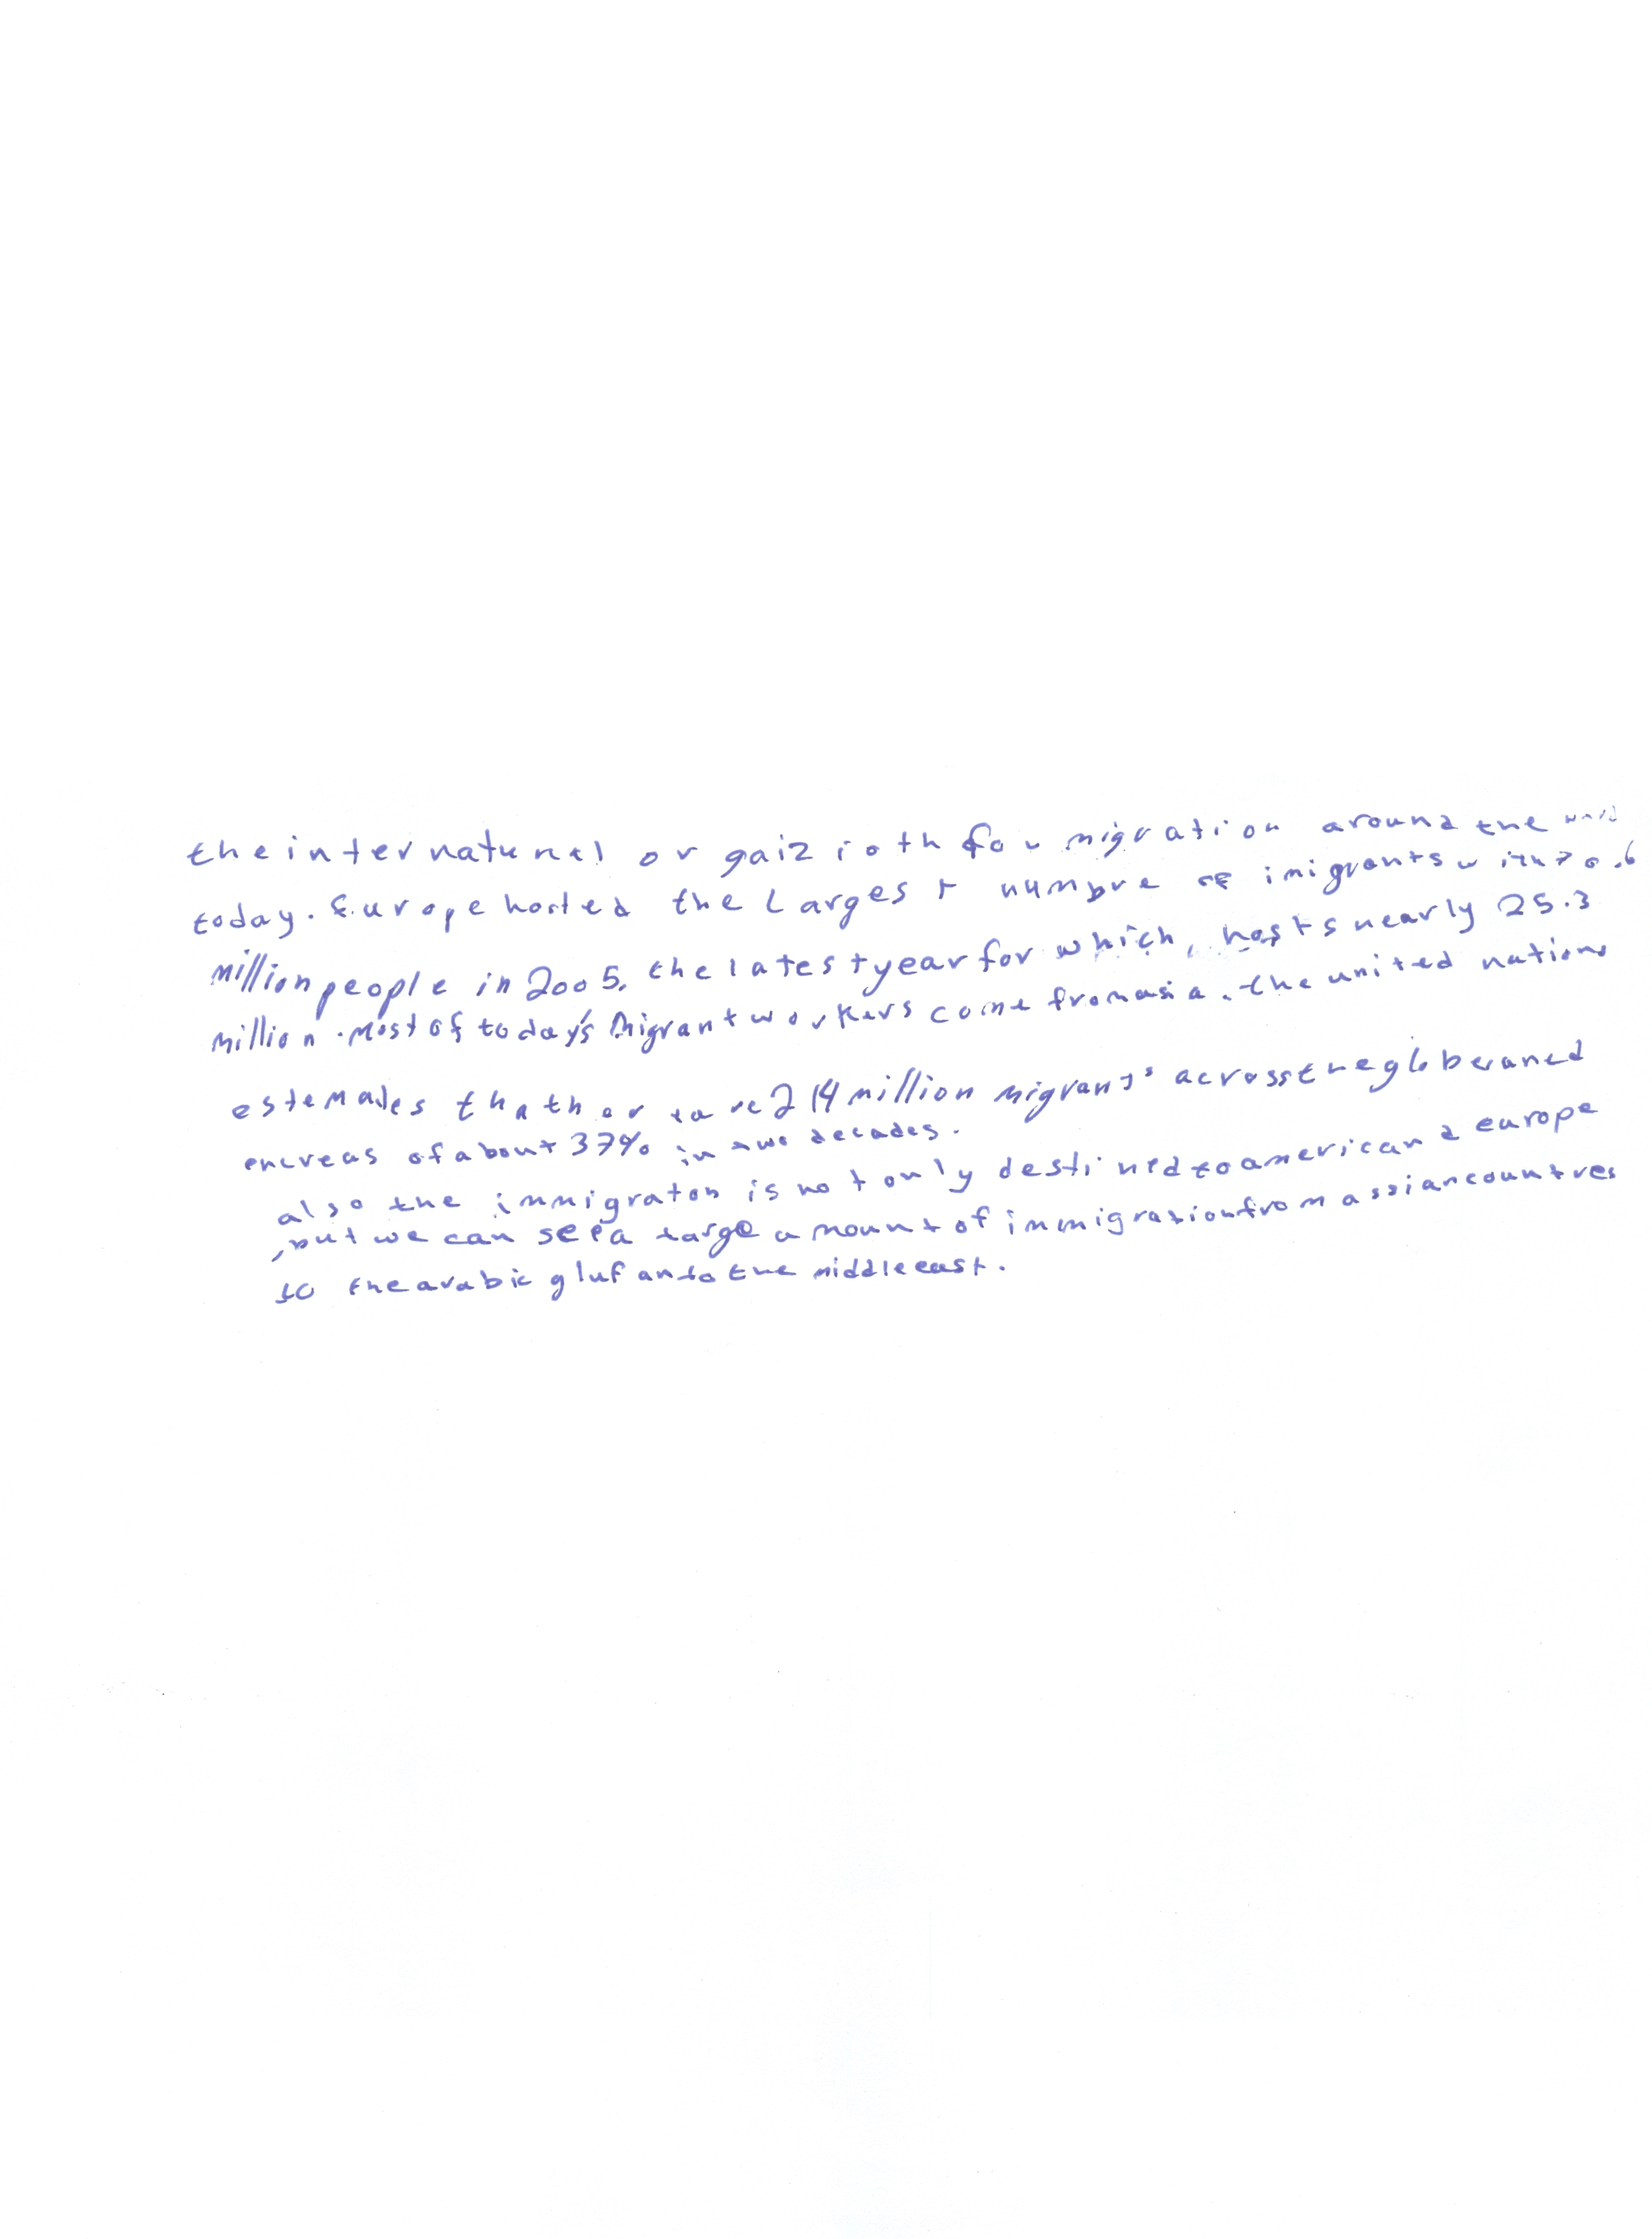 the internatunal orgaizioth for migration around the world
today. Europe hosted the Largest numbre of imigrants with 70.6
million people in 2005, the latest year for which, hosts nearly 25.3
million. Most of today's migrant workers come from asia. the united nations
estemates that ther 214 million migrants across the globe aned
encreas of about 37% in two decades.
also the immigraton is not only destined to america nd europe
, but we can see a large amount of immigration from assian countres
to the arabic gluf and to the middle east.